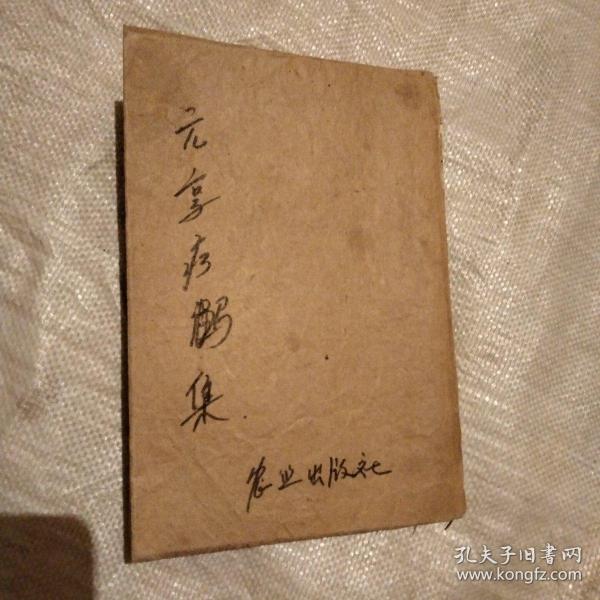 元享疗馬集
农业出版社
孔夫子旧書网
www.kongfz.com